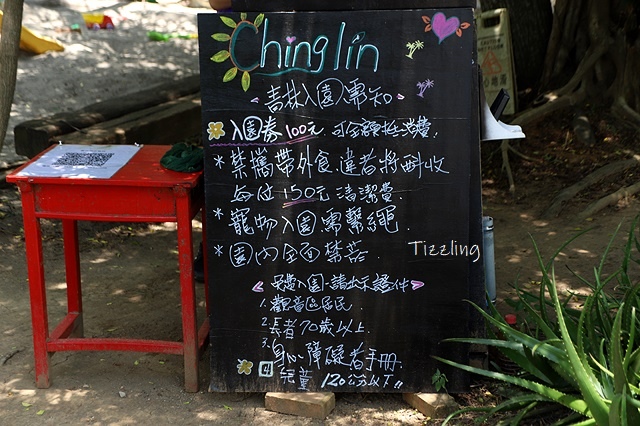 Chinglin
青林入園需知
入園券100元 可全額抵消費!
*禁攜帶外食,違者將酌收
每位150元清潔費.
*寵物入園需繫繩.
*園內全面禁菸.
Tizzling
免費入園-請出示證件
1.觀音區居民.
2.長者70歲以上.
3.身心障礙者手冊.
4 兒童120公分以下!!